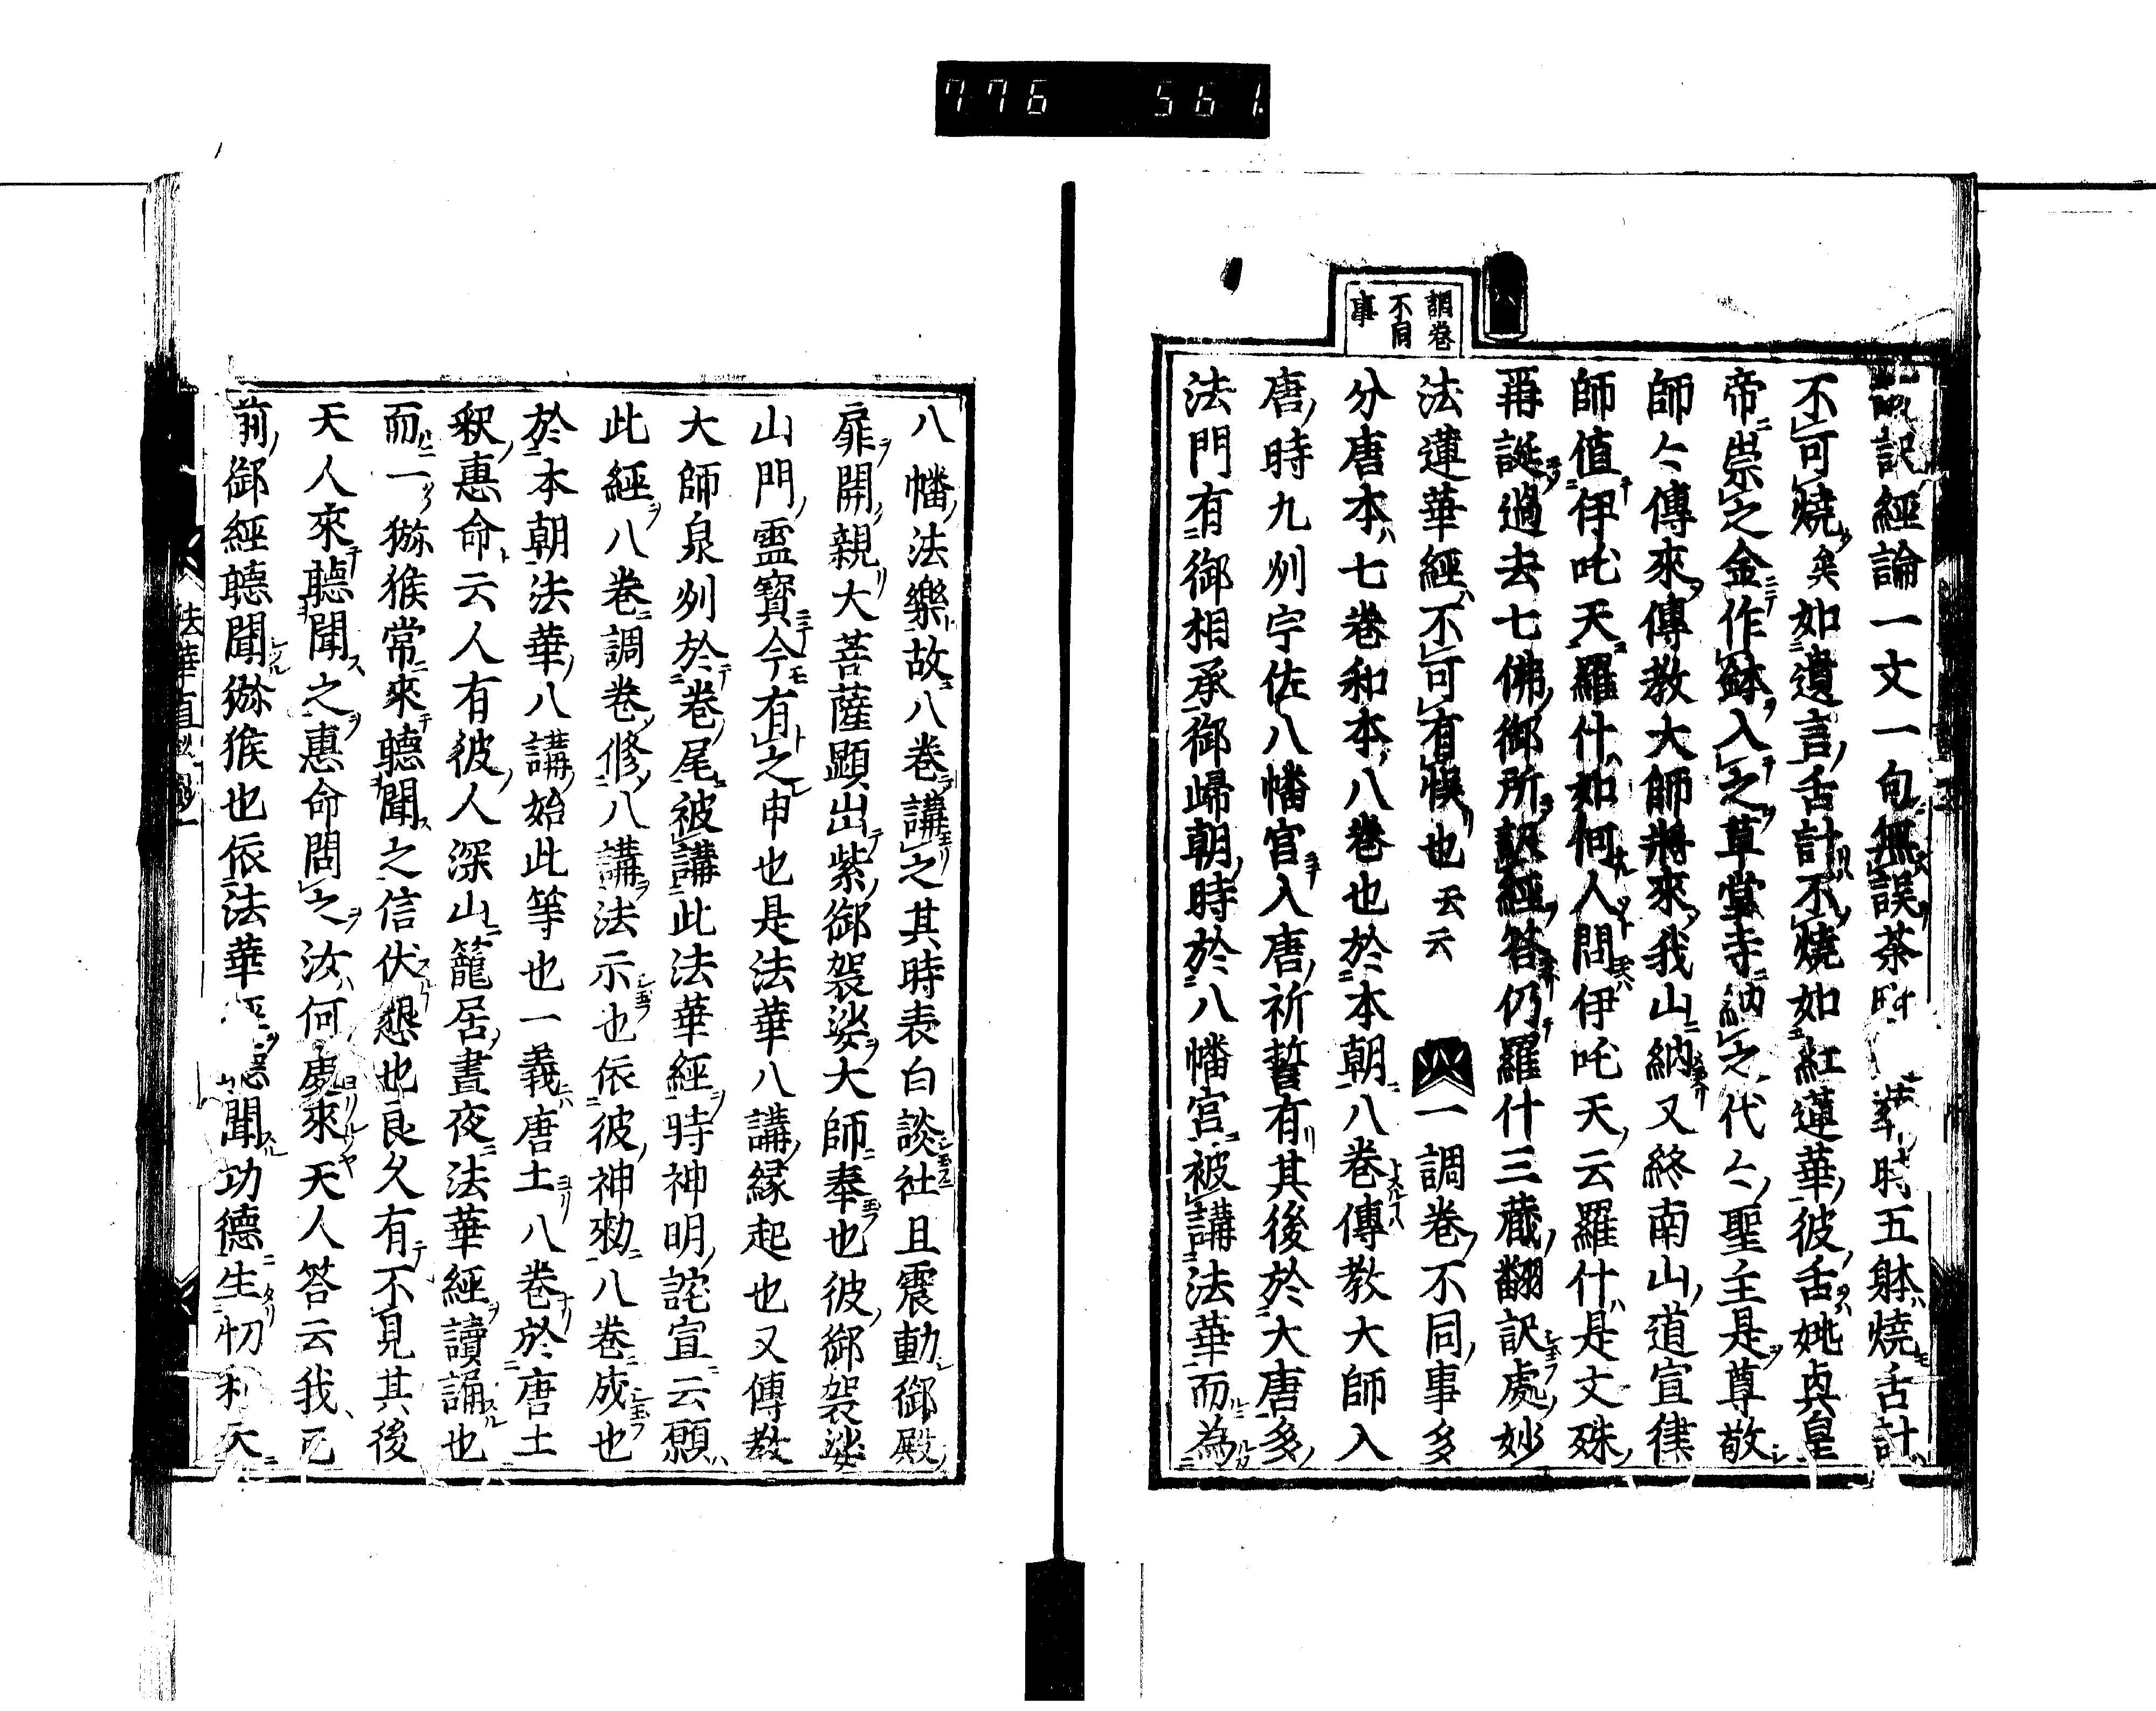 776 561.
調巻
不同
事
訳経論一文一句無誤荼時五躰焼舌計
不可焼矣如遺言舌計不焼如紅蓮華彼舌姚眞皇
帝崇之金作鉢入之草堂寺納之代々聖主是尊敬
師々傳來傳教大師將來我山納又終南山道宣律
師値伊吒天羅什如何人問伊吒天云羅什是文殊
再誕過去七佛御所訳經答仍羅什三蔵翻訳處妙
法蓮華經不可有悞也云云 一調卷不同事多
分唐本七巻和本八巻也於本朝八巻傳教大師入
唐時九刕宇佐八幡宮入唐祈誓有其後於大唐多
法門有御相承御歸朝時於八幡宮被講法華而為
八幡法樂故八巻講之其時表白談社且震動御殿
扉開親大菩薩顕出紫御袈裟大師奉也彼御袈裟
山門霊寳今有之申也是法華八講縁起也又傳教
大師泉刕於巻尾被講此法華經時神明詫宣云願
此經八巻調卷修八講法示也依彼神勑八巻成也
於本朝法華八講始此等也一義唐土八巻於唐土
釈惠命云人有彼人深山籠居晝夜法華經讀誦也
而一猕猴常來聴聞之信伏懇也良久有不見其後
天人來聴聞之惠命問之汝何處來天人答云我已
前御經聴聞猕猴也依法華聞功德生忉利天
法華直